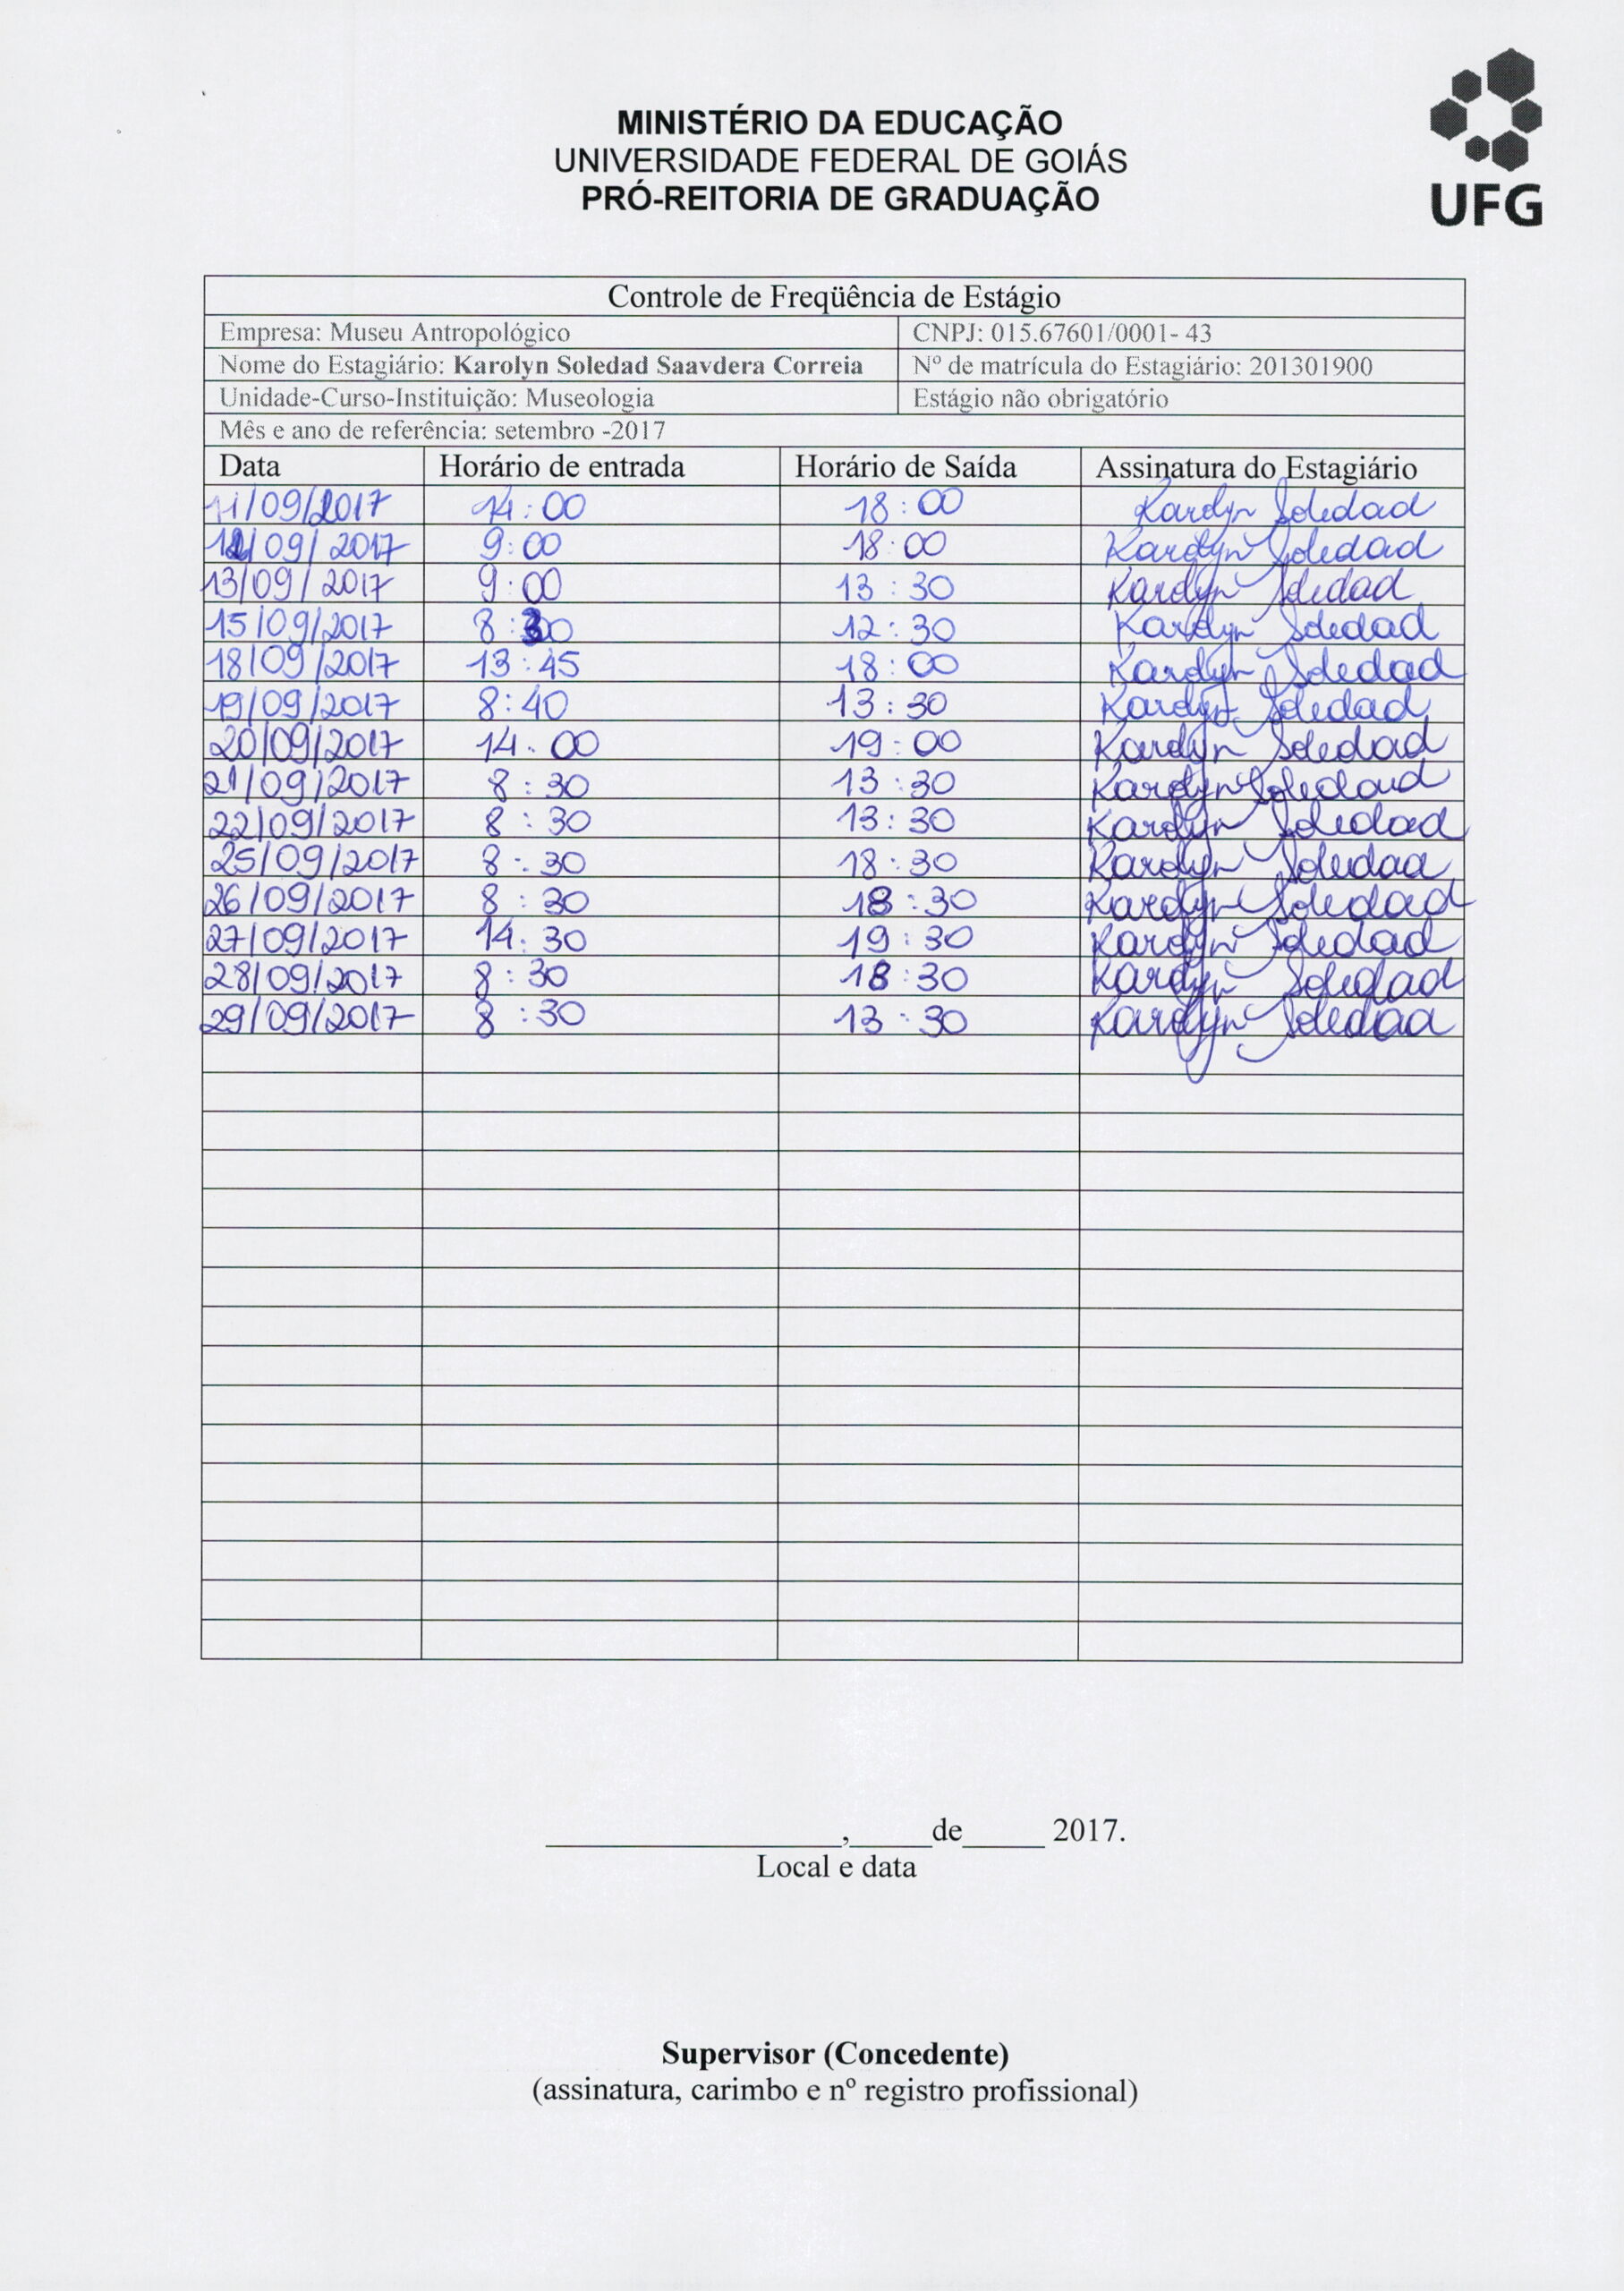 MINISTÉRIO DA EDUCAÇÃO
UNIVERSIDADE FEDERAL DE GOIÁS
PRÓ-REITORIA DE GRADUAÇÃO
UFG
Controle de Freqüência de Estágio
Empresa: Museu Antropológico CNPJ: 015.67601/0001- 43
Nome do Estagiário: Karolyn Soledad Saavdera Correia Nº de matrícula do Estagiário: 201301900
Unidade-Curso-Instituição: Museologia Estágio não obrigatório
Mês e ano de referência: setembro -2017
Data Horário de entrada Horário de Saída Assinatura do Estagiário
11/09/2017 14:00 18:00 Karolyn Soledad
12/09/2017 9:00 18:00 Karolyn Soledad
13/09/2017 9:00 13:30 Karolyn Soledad
15/09/2017 8:30 12:30 Karolyn Soledad
18/09/2017 13:45 18:00 Karolyn Soledad
19/09/2017 8:40 13:30 Karolyn Soledad
20/09/2017 14:00 19:00 Karolyn Soledad
21/09/2017 8:30 13:30 Karolyn Soledad
22/09/2017 8:30 13:30 Karolyn Soledad
25/09/2017 8:30 18:30 Karolyn Soledad
26/09/2017 8:30 18:30 Karolyn Soledad
27/09/2017 14:30 19:30 Karolyn Soledad
28/09/2017 8:30 18:30 Karolyn Soledad
29/09/2017 8:30 13:30 Karolyn Soledad
__________________,_____de_____ 2017.
Local e data
Supervisor (Concedente)
(assinatura, carimbo e nº registro profissional)